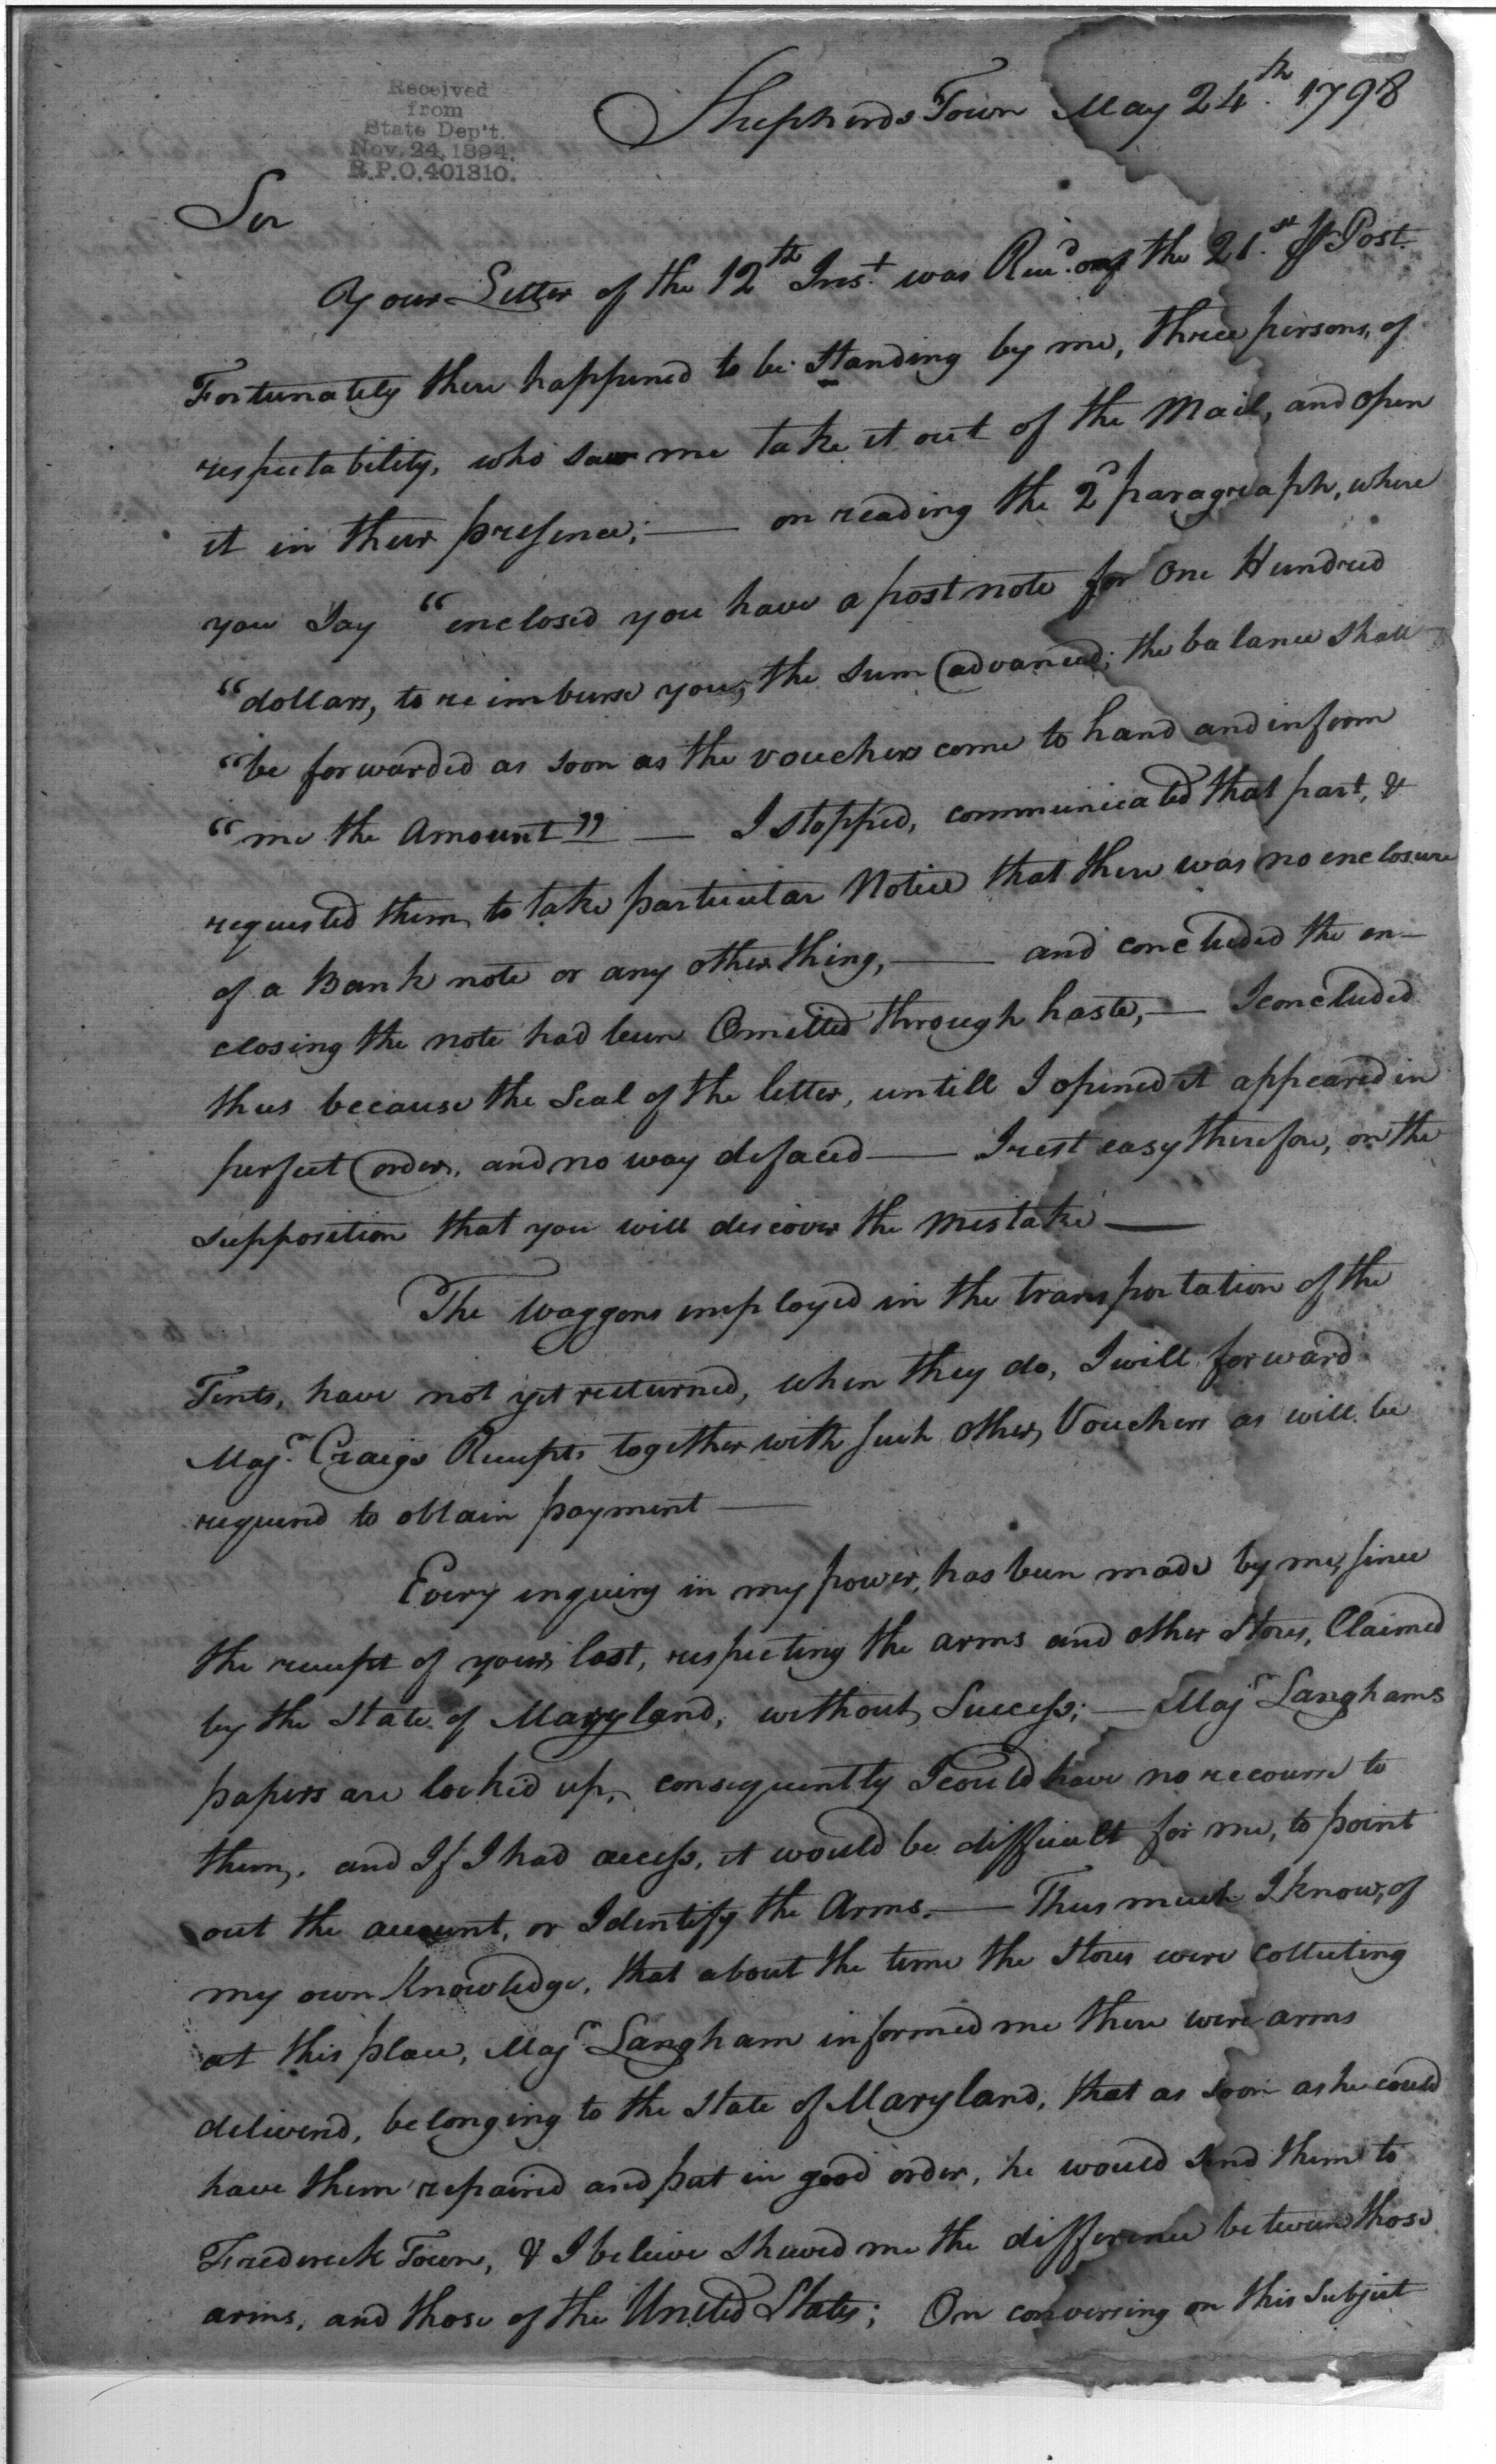 Received
from
State Dep't.
Nov. 24, 1894.
R.P.O. 401310.
Shepherds Town May 24th. 1798
Sir
Your Letter of the 12th Inst. was Recd. on the 21.st Pr Post.
Fortunately there happened to be Standing by me, three persons, of
respectability, who saw me take it out of the Mail, and open
it in their presence; — on reading the 2d paragraph, where
you Say "enclosed you have a post note for One Hundred
"dollars, to reimburse you, the sum advanced; the balance shall
"be forwarded as soon as the vouchers come to hand and inform
"me the Amount" — I stopped, communicated that part, &
requested them, to take particular Notice that there was no enclosure
of a Bank note or any other thing, — and concluded the en-
closing the note had been Omitted through haste, — I concluded
thus because the Seal of the letter, untill I opened it appeared in
perfect order, and no way defaced — I rest easy therefore, on the
supposition that you will discover the Mistake —
The Waggons employed in the transportation of the
Tents, have not yet returned, when they do, I will forward
Majr. Craigs Receipts together with such other, Vouchers as will be
required to obtain payment —
Every inquiry in my power, has been made by me, since
the receipt of yours last, respecting the arms and other Stores, Claimed
by the State of Maryland, without, Success; — Majr Langhams
papers are lock'd up, consequently I could have no recourse to
them, and If I had access, it would be difficult for me, to point
out the account, or Identify the Arms. — Thus much I know, of
my own Knowledge, that about the time the Stores were Collecting
at this place, Majr Langham informed me there were arms
delivered, belonging to the State of Maryland, that as soon as he could
have them repaired and put in good order, he would send them to
Frederick Town, & I believe shewed me the difference between those
arms, and those of the United States; On conversing on this Subject